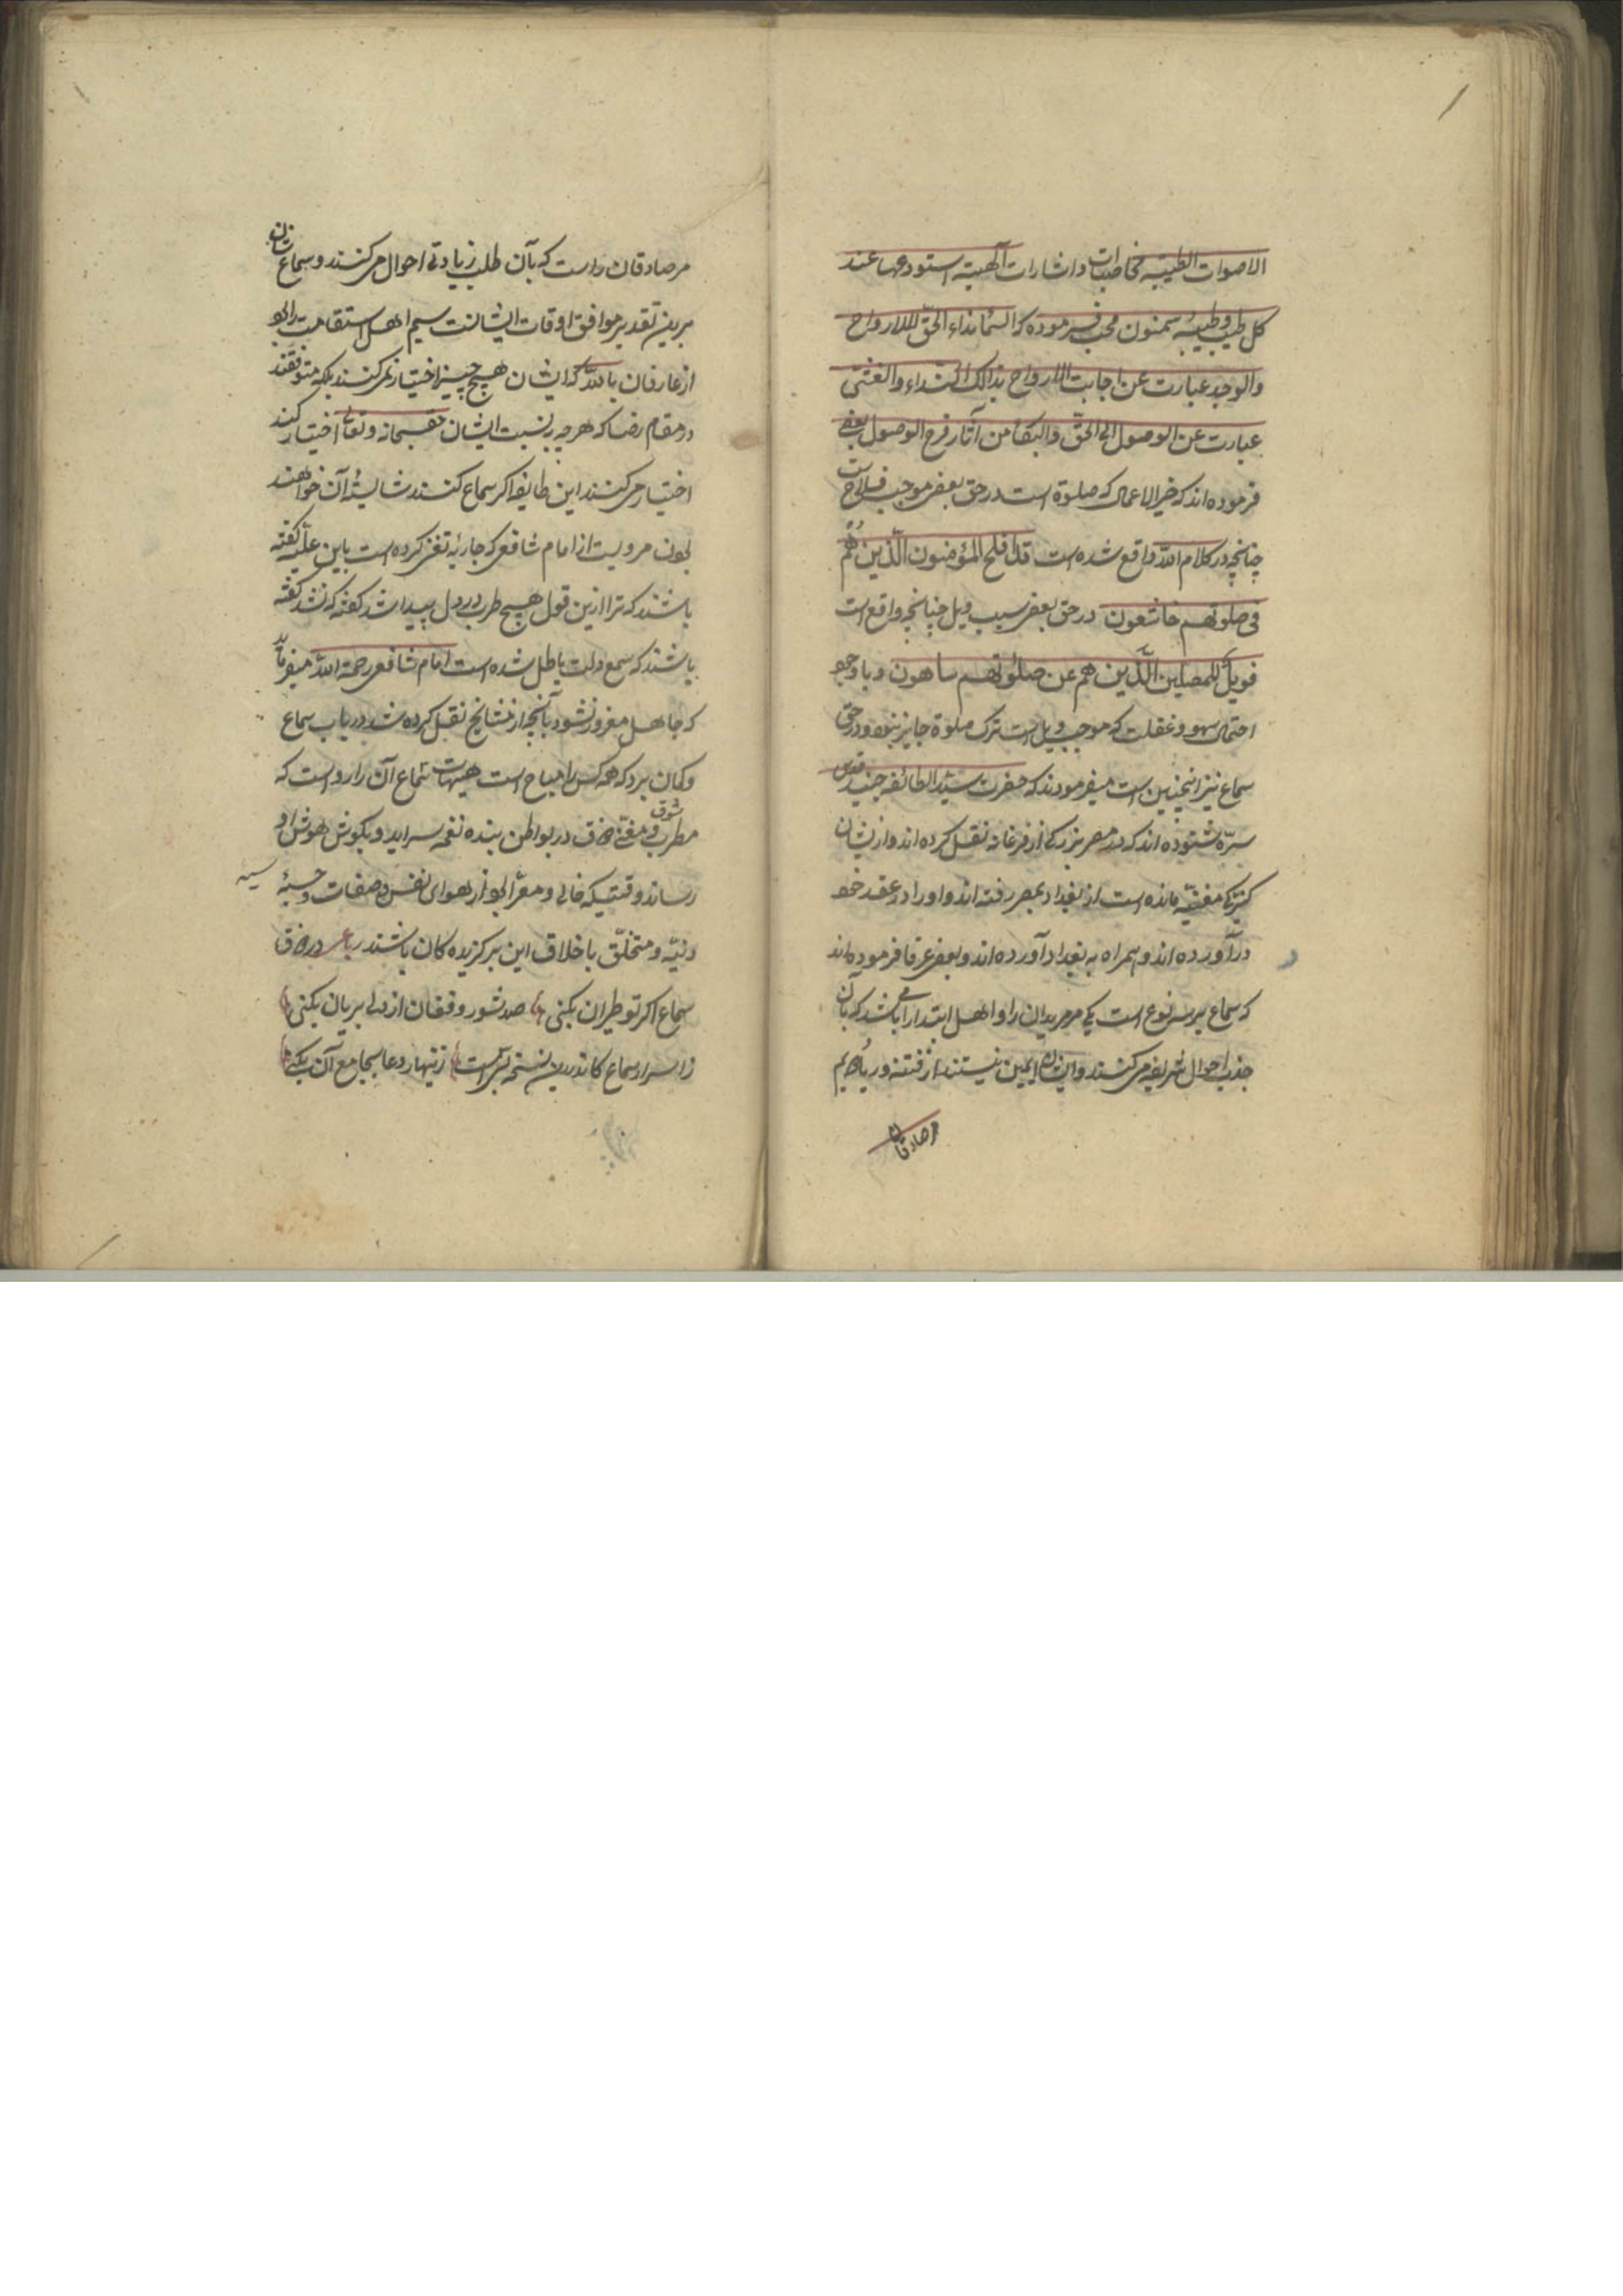 الاصوات الطیبه مخاطبات واشارات آلهیته استودعها عند
کل طیب وطیبة سمنون محب فرموده که السماع نداء الحق للارواح
والوجد عبارت عن اجابت الارواح بذالک النداء والغشی
عبارت عن الوصول الی الحق والبکا من آثار فرح الوصول بعضی
فرموده اند که خیر الاعمال که صلوة است در حق بعضی موجب فلاح است
چنانچه در کلام الله واقع شده است قد افلح المؤمنون الّذین هُم
فی صلوتهم خاشعون در حق بعضی سبب ویل چنانچه واقع است
فویلٌ للمصلین الّذین هم عن صلوتهم ساهون وباوجو
احتمال سهو وغفلت که موجب ویل است ترک صلوة جایز نبود ودر حق
سماع نیز اینچنین است میفرمودند که حضرت سید الطائفه جنید قدس
سرّه شنوده اند که در مصر بزرکی از فرغانه نقل کرده اند واز ایشان
کنیزکی مغنیّه مانده است از بغداد بمصر رفته اند واورا در عقد خو
درآورده اند وهمراه به بغداد آورده اند وبعضی عرفا فرموده اند
که سماع بر سه نوع است یکی مر مریدان را واهل ابتدا را می باشد که بآن
جذب احوال شریفه می کنند وایشان ایمین نیستند از فتنه وریا دویم
مر صادقان
مر صادقان راست که بآن طلب زیادتی احوال می کنند وسماع شان
برین تقدیر موافق اوقات ایشانست سیم اهل استقامت راکه
از عارفان بالله که ایشان هیچ چیز اختیار نمی کنند بلکه متوقفند
در مقام رضا که هر چه به نسبت ایشان حق سبحانه وتعالی اختیار کند
اختیار می کنند این طایفه اکر سماع کنند شایسته آن خواهند
بود مرویست از امام شافعی که جاریهٔ تغنی کرده است باین علیّه کفته
باشند که ترا ازین قول هیچ طرب در دل پیدا شد کفته که نشد کفته
باشند که سمع دلت باطل شده است امام شافعی رحمة الله میفرماید
که جاهل مغرور نشود بآنچه از مشایخ نقل کرده شد در باب سماع
وکمان برد که همه کس را مباح است هیهات سماع آن را رواست که
مطرب شوق ومغنی ذوق در بواطن بنده نغمه سراید وبکوش هوش او
رساند وقتیکه خالی ومعرّا بود از هوای نفس وصفات خسیسهٔ
دنیّه ومتخلّق باخلاق این برکزیده کان باشند رباعی در ذوق
سماع اکر تو طیران بکنی صد شور وفغان از دل بریان بکنی
ز اسرار سماع کاندرین نسخه زنهار دعا بجامع آن بکنی